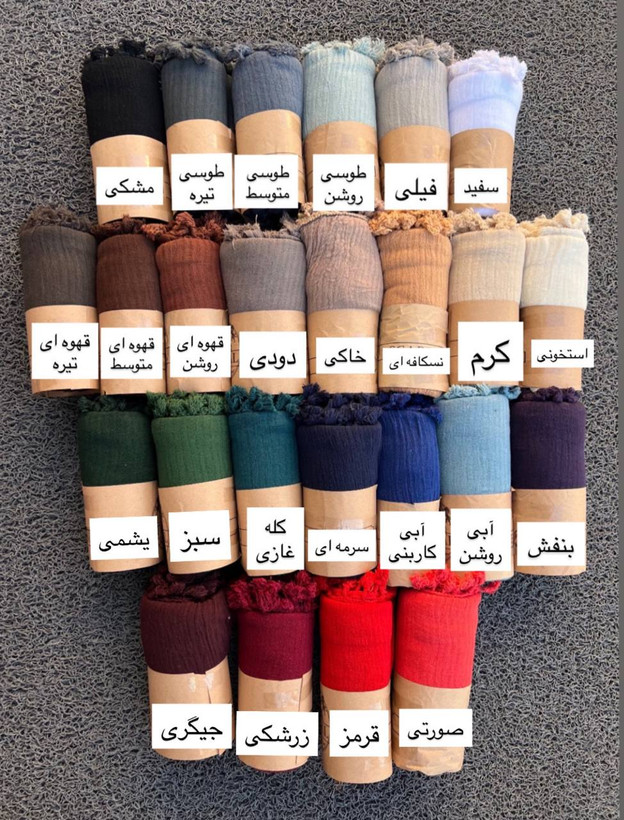 مشکی
طوسی
تیره
طوسی
متوسط
طوسی
روشن
فیلی
سفید
قهوه ای
تیره
قهوه ای
متوسط
قهوه ای
روشن
دودی
خاکی
نسکافه ای
کرم
استخونی
یشمی
سبز
کله
غازی
سرمه ای
آبی
کاربنی
آبی
روشن
بنفش
جیگری
زرشکی
قرمز
صورتی